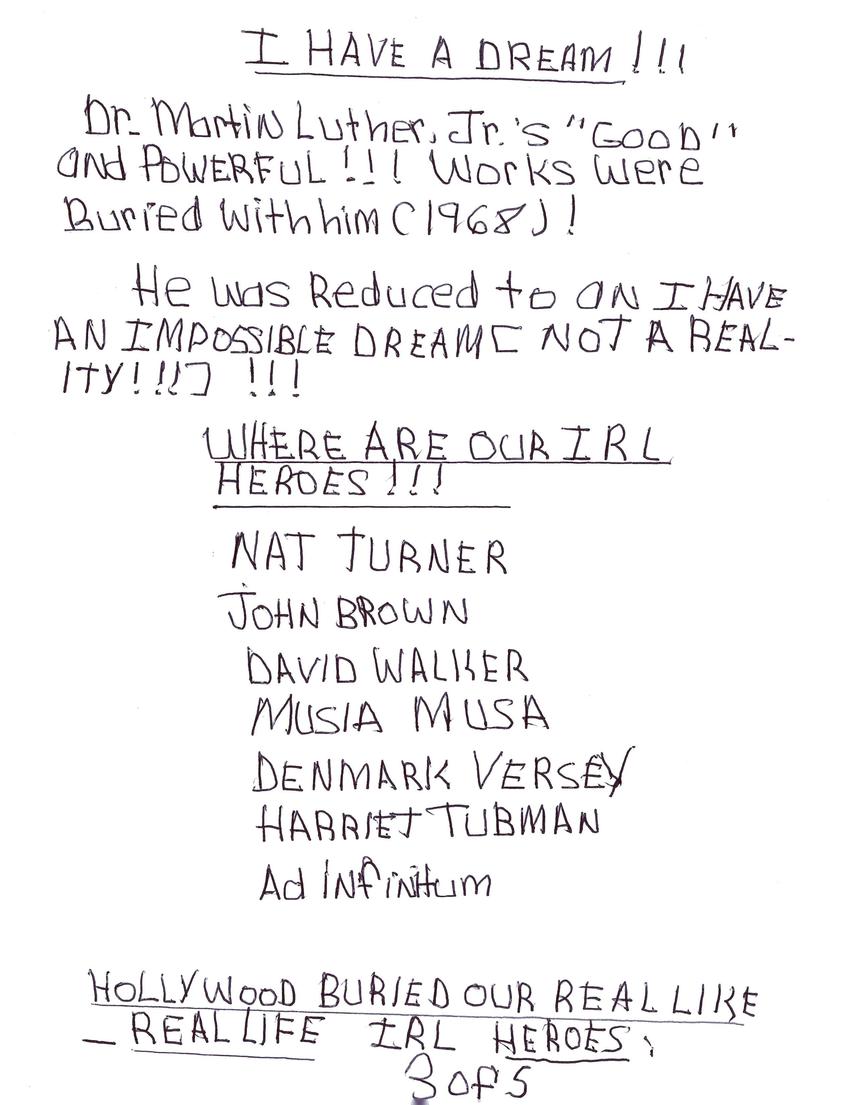 I HAVE A DREAM!!!
Dr. Martin Luther, Jr.'s "GOOD"
and POWERFUL!!! Works Were
Buried With him (1968)!
He was Reduced to an I HAVE
AN IMPOSSIBLE DREAM[ NOT A REAL-
ITY!!!] !!!
WHERE ARE OUR IRL
HEROES!!!
NAT TURNER
JOHN BROWN
DAVID WALKER
MUSIA MUSA
DENMARK VERSEY
HARRIET TUBMAN
Ad INfiNitum
HOLLYWOOD BURIED OUR REAL LIKE
– REAL LIFE IRL HEROES;
3 of 5